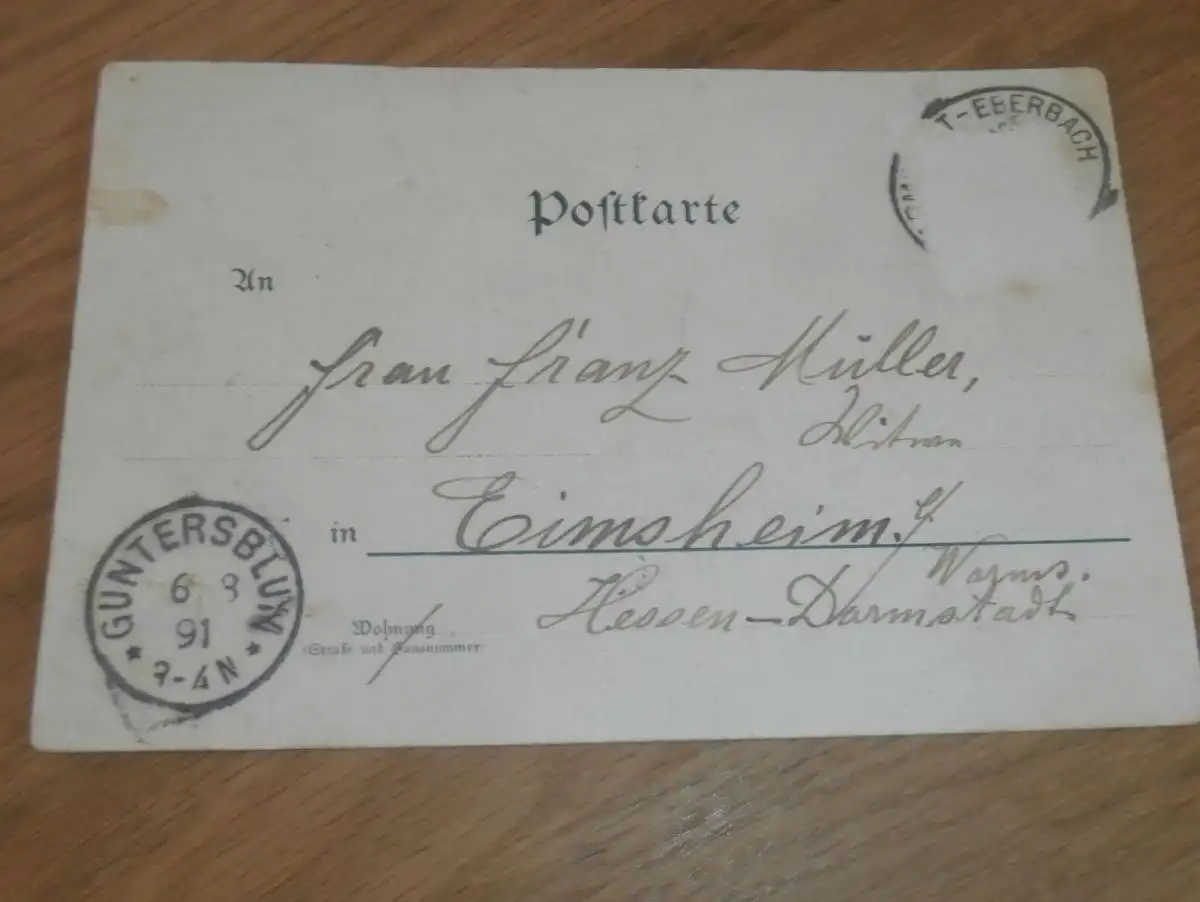 T-EBERBACH
Postkarte
An
Frau Franz Müller,
Witwe
in Eimsheim.
Worms.
Hessen-Darmstadt
Wohnung
(Straße und Hausnummer)
GUNTERSBLUM
6 8
91
3-4N